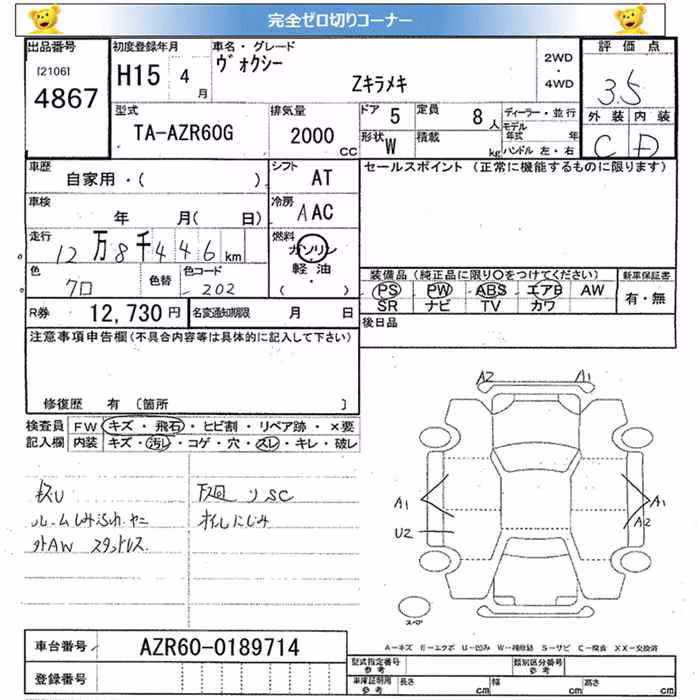 完全ゼロ切りコーナー
出品番号
[2106]
4867
初度登録年月
H15 4 月
車名・グレード
ヴォクシー
Zキラメキ
2WD
・
4WD
評価点
3.5
外装 内装
C D
型式
TA-AZR60G
排気量
2000 CC
ドア 5
定員 8 人
形状 W
積載 kg
ディーラー・並行
モデル年式 年
ハンドル 左・右
車歴
自家用・( )
シフト AT
セールスポイント (正常に機能するものに限ります)
車検
年 月( 日)
冷房 AAC
走行
12万8千446 km
燃料
ガソリン
軽油
( ・ )
色
クロ
色替
色コード
202
装備品(純正品に限り○をつけてください)
PS PW ABS エアB AW
SR ナビ TV カワ
新車保証書
有・無
R券 12,730 円
名変通知期限 月 日
後日品
注意事項申告欄(不具合内容等は具体的に記入して下さい)
修復歴 有 〔箇所 〕
検査員
記入欄
FW キズ・飛石・ヒビ割・リペア跡・×要
内装 キズ・汚レ・コゲ・穴・スレ・キレ・破レ
ルームしみ汚れ.ヤニ
外AW スタットレス
下廻リSC
オイルにじみ
A2 A1
A1
U2
A1
A2
スペア
A-キズ E-エクボ U-凹み W-補修跡 S-サビ C-腐食 XX-交換済
車台番号 AZR60-0189714
登録番号
型式指定番号
参考
類別区分番号
参考
車庫証明用
参考
長さ cm
幅 cm
高さ cm